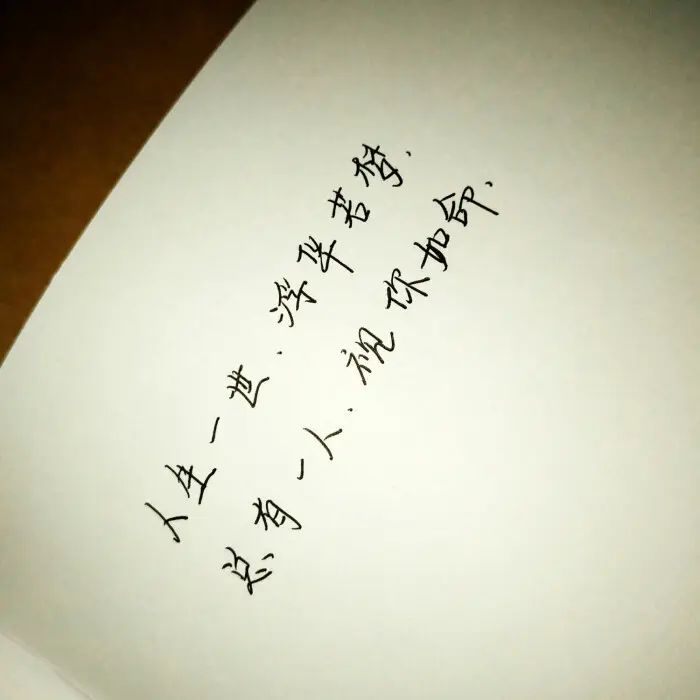 人生一世、浮华若梦.
总有一人、视你如命.